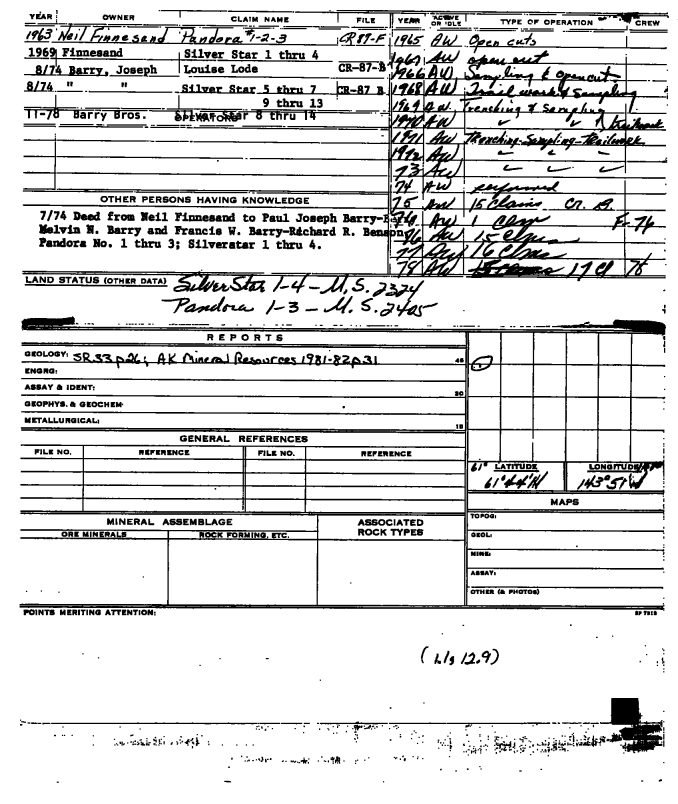 YEAR OWNER CLAIM NAME FILE YEAR ACTIVE OR IDLE TYPE OF OPERATION CREW
1963 Neil Finnesand Pandora #1-2-3 CR 87-F 1965 AW Open cuts
1969 Finnesand Silver Star 1 thru 4 AW open cut
8/74 Barry, Joseph Louise Lode CR-87-B 1966 AW Sampling & opencut
8/74 " " Silver Star 5 thru 7 CR-87 B 1968 AW Trail work & Sampling
9 thru 13 1969 AW Trenching & Sampling
11-78 Barry Bros. Silver Star 8 thru 14 1970 AW " " & trailwork
OPERATIONS
1971 AW Trenching-Sampling-Trailwork
1972 AW " " "
73 AW " " "
74 AW performed
OTHER PERSONS HAVING KNOWLEDGE 75 AW 15 Claims
7/74 Deed from Neil Finnesand to Paul Joseph Barry- AW 1 Clm F-76
Melvin N. Barry and Francis W. Barry-Richard R. Benson 76 AW 15 Clms
Pandora No. 1 thru 3; Silverstar 1 thru 4. 77 AW 16 Clms
78 AW 15 Clms 17 Cl 78
LAND STATUS (OTHER DATA) Silver Star 1-4 - M.S. 2324
Pandora 1-3 - M.S. 2405
REPORTS
GEOLOGY: SR33 p26; AK Mineral Resources 1981-82 p31 45
ENGRG:
ASSAY & IDENT: 30
GEOPHYS. & GEOCHEM:
METALLURGICAL: 15
GENERAL REFERENCES
FILE NO. REFERENCE FILE NO. REFERENCE
61° LATITUDE LONGITUDE
61°44'N 143°51'W
MAPS
MINERAL ASSEMBLAGE ASSOCIATED ROCK TYPES
ORE MINERALS ROCK FORMING, ETC.
TOPOG:
GEOL:
MINE:
ASSAY:
OTHER (& PHOTOS)
POINTS MERITING ATTENTION:
(L/s 12.9)